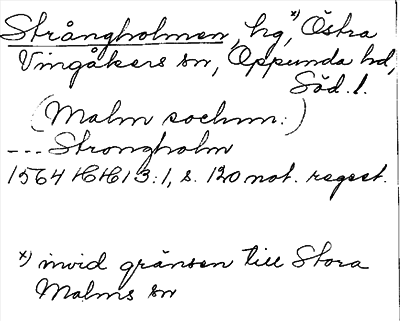 Strångholmen, hg, x) Östra
Vingåkers sn, Oppunda hd,
Söd. l.
(Malm sochnn:)
--- Strongholm
1564 HH 13:1, s. 120 not. regest.
x) invid gränsen till Stora
Malms sn